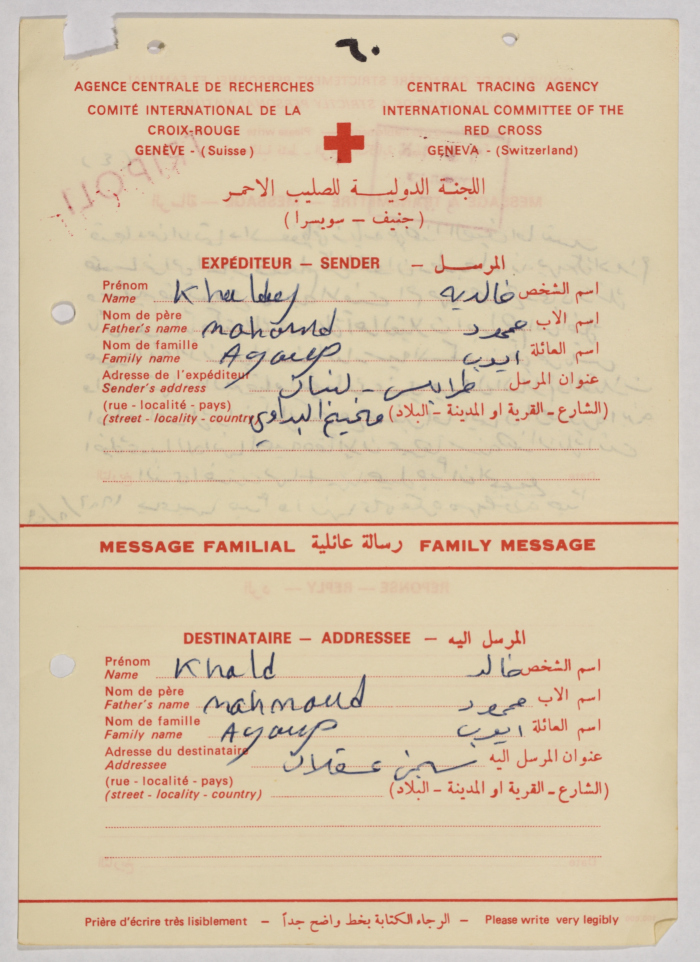 ٦٠
AGENCE CENTRALE DE RECHERCHES
COMITÉ INTERNATIONAL DE LA
CROIX-ROUGE
GENÈVE - (Suisse)
CENTRAL TRACING AGENCY
INTERNATIONAL COMMITTEE OF THE
RED CROSS
GENEVA - (Switzerland)
TRIPOLI
اللجنة الدولية للصليب الاحمر
(جنيف – سويسرا)
EXPÉDITEUR – SENDER – المرسل
Prénom
Name Khaldey خالديه اسم الشخص
Nom de père
Father's name mahomd محمود اسم الاب
Nom de famille
Family name Ayoup ايوب اسم العائلة
Adresse de l'expéditeur
Sender's address طرابلس - لبنان عنوان المرسل
(rue - localité - pays)
(street - locality - country) مخيم البداوي (الشارع - القرية او المدينة - البلاد)
MESSAGE FAMILIAL رسالة عائلية FAMILY MESSAGE
DESTINATAIRE – ADDRESSEE – المرسل اليه
Prénom
Name Khald خالد اسم الشخص
Nom de père
Father's name mahmoud محمود اسم الاب
Nom de famille
Family name Ayoup ايوب اسم العائلة
Adresse du destinataire
Addressee سجن عسقلان عنوان المرسل اليه
(rue - localité - pays)
(street - locality - country) (الشارع - القرية او المدينة - البلاد)
Prière d'écrire très lisiblement – الرجاء الكتابة بخط واضح جداً – Please write very legibly